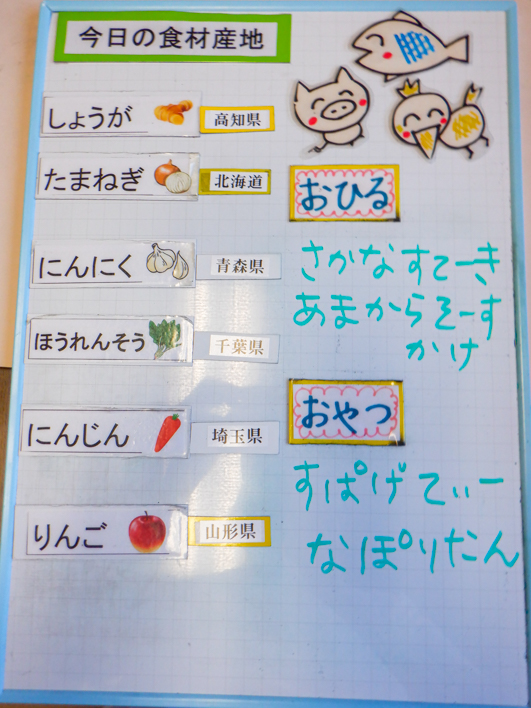 今日の食材産地
しょうが 高知県
たまねぎ 北海道
にんにく 青森県
ほうれんそう 千葉県
にんじん 埼玉県
りんご 山形県
おひる
さかなすてーき
あまからそーす
かけ
おやつ
すぱげてぃー
なぽりたん